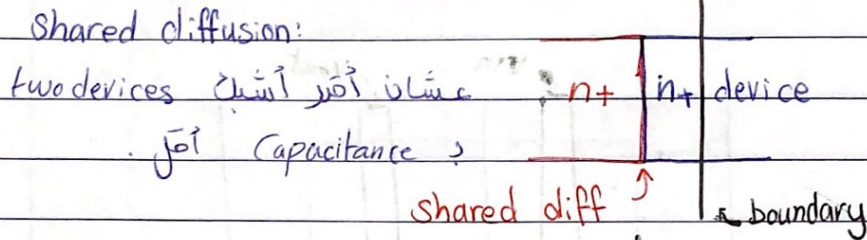 Shared diffusion:
عشان أقدر أشبك two devices
بـ Capacitance أقل.
n+ n+ device
shared diff
boundary